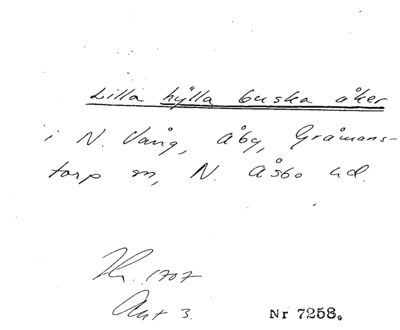 Lilla hylla buska åker
i N. Vång, Åby, Gråmans-
torp sn, N. Åsbo hd.
Hk. 1707
Akt 3.
Nr 7258.